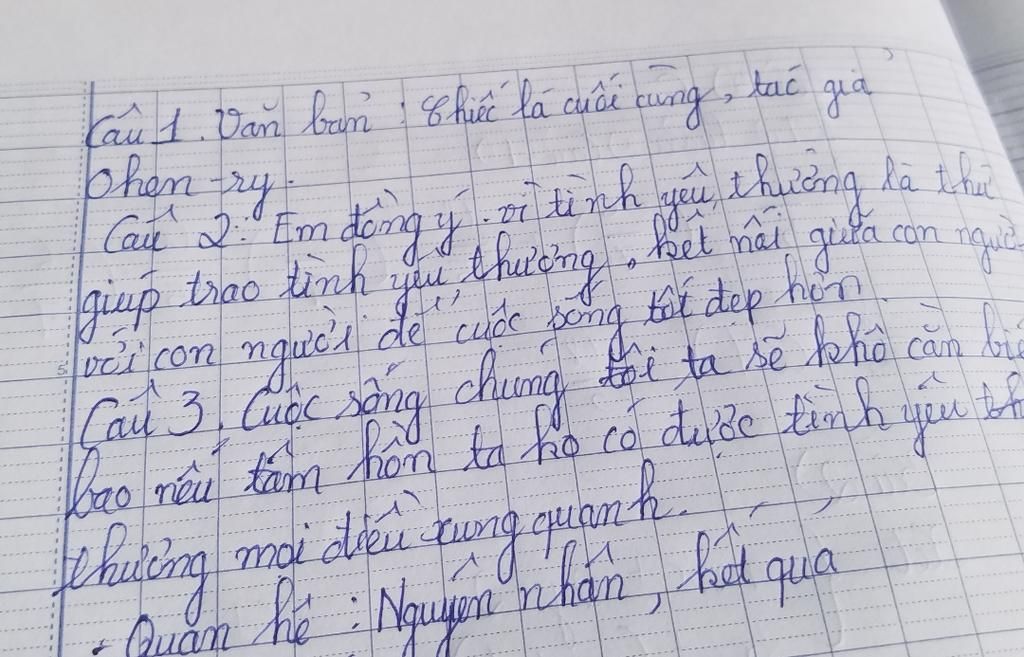 Câu 1. Văn bản : Chiếc lá cuối cùng, tác giả
Ohen-ry.
Câu 2: Em đồng ý. vì tình yêu thường là thứ
giúp trao tình yêu thương, kết nối giữa con người
với con người để cuộc sống tốt đẹp hơn
Câu 3. Cuộc sống chúng ta sẽ khô cằn
bao nếu tâm hồn ta ko có được tình yêu
thương mọi điều xung quanh.
. Quan hệ : Nguyên nhân, kết quả